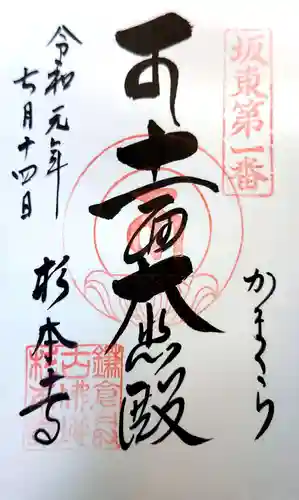 坂東第一番
かまくら
十一面大悲殿
令和元年
七月十四日
杉本寺